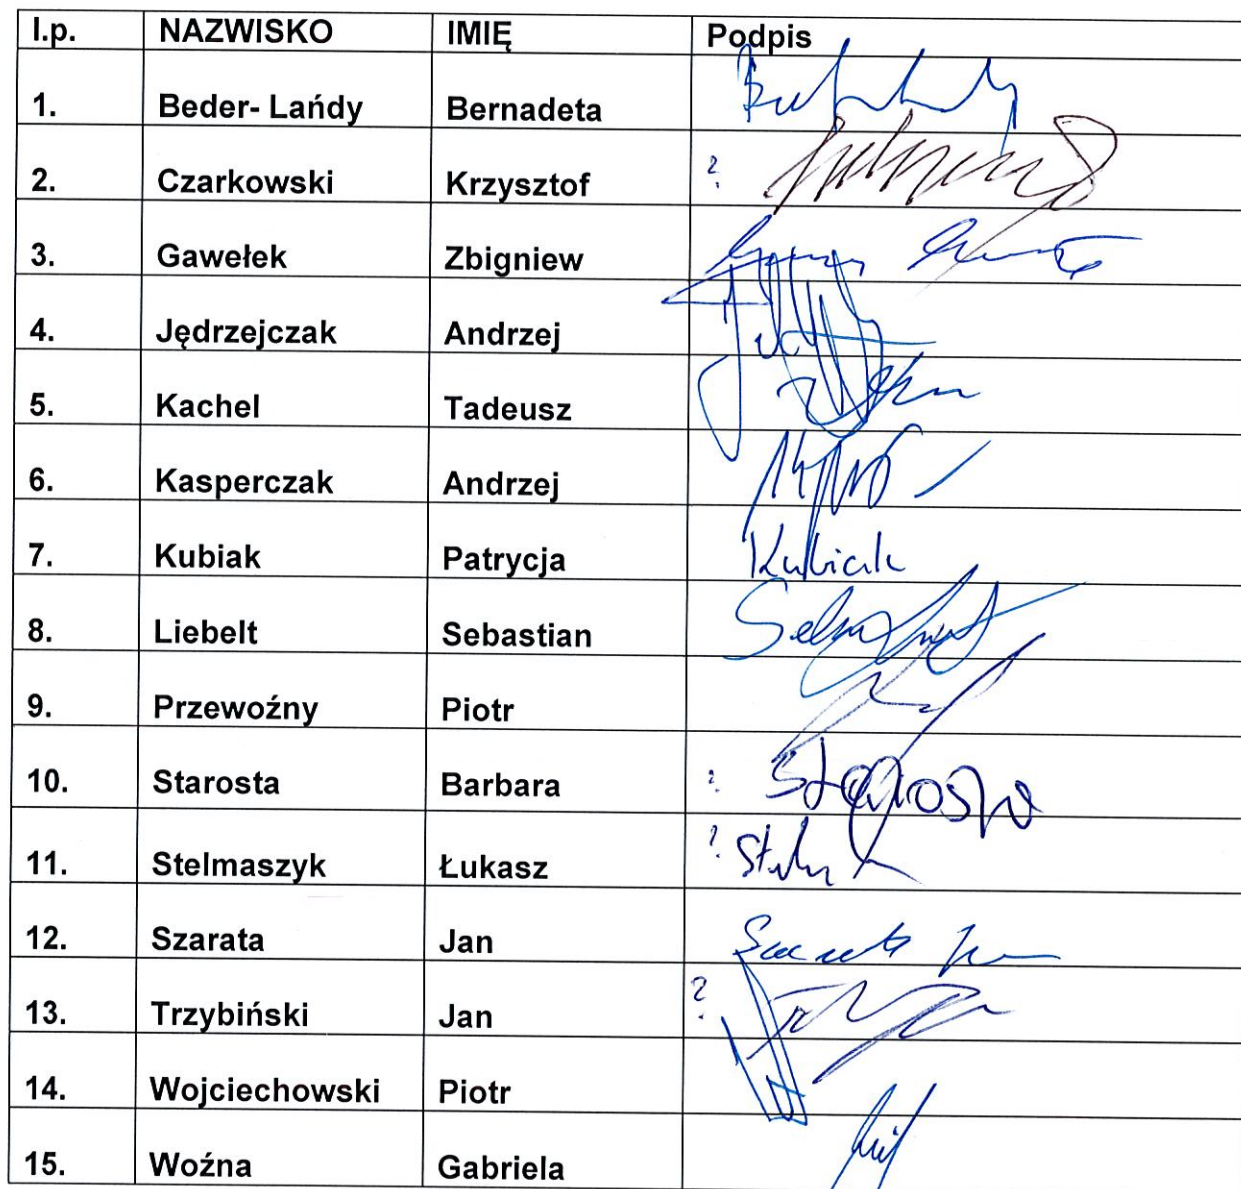 l.p. NAZWISKO IMIĘ Podpis
1. Beder- Lańdy Bernadeta
2. Czarkowski Krzysztof ?
3. Gawełek Zbigniew
4. Jędrzejczak Andrzej
5. Kachel Tadeusz
6. Kasperczak Andrzej
7. Kubiak Patrycja Kubiak
8. Liebelt Sebastian
9. Przewoźny Piotr
10. Starosta Barbara ? Starosta
11. Stelmaszyk Łukasz ?
12. Szarata Jan
13. Trzybiński Jan ?
14. Wojciechowski Piotr
15. Woźna Gabriela